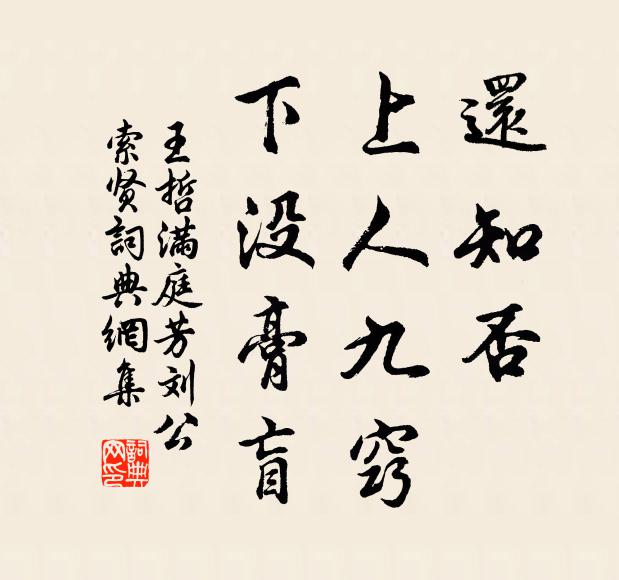 還知否
上人九窍
下没膏盲
王哲满庭芳刘公
索贤詞典網集
詞典
网印